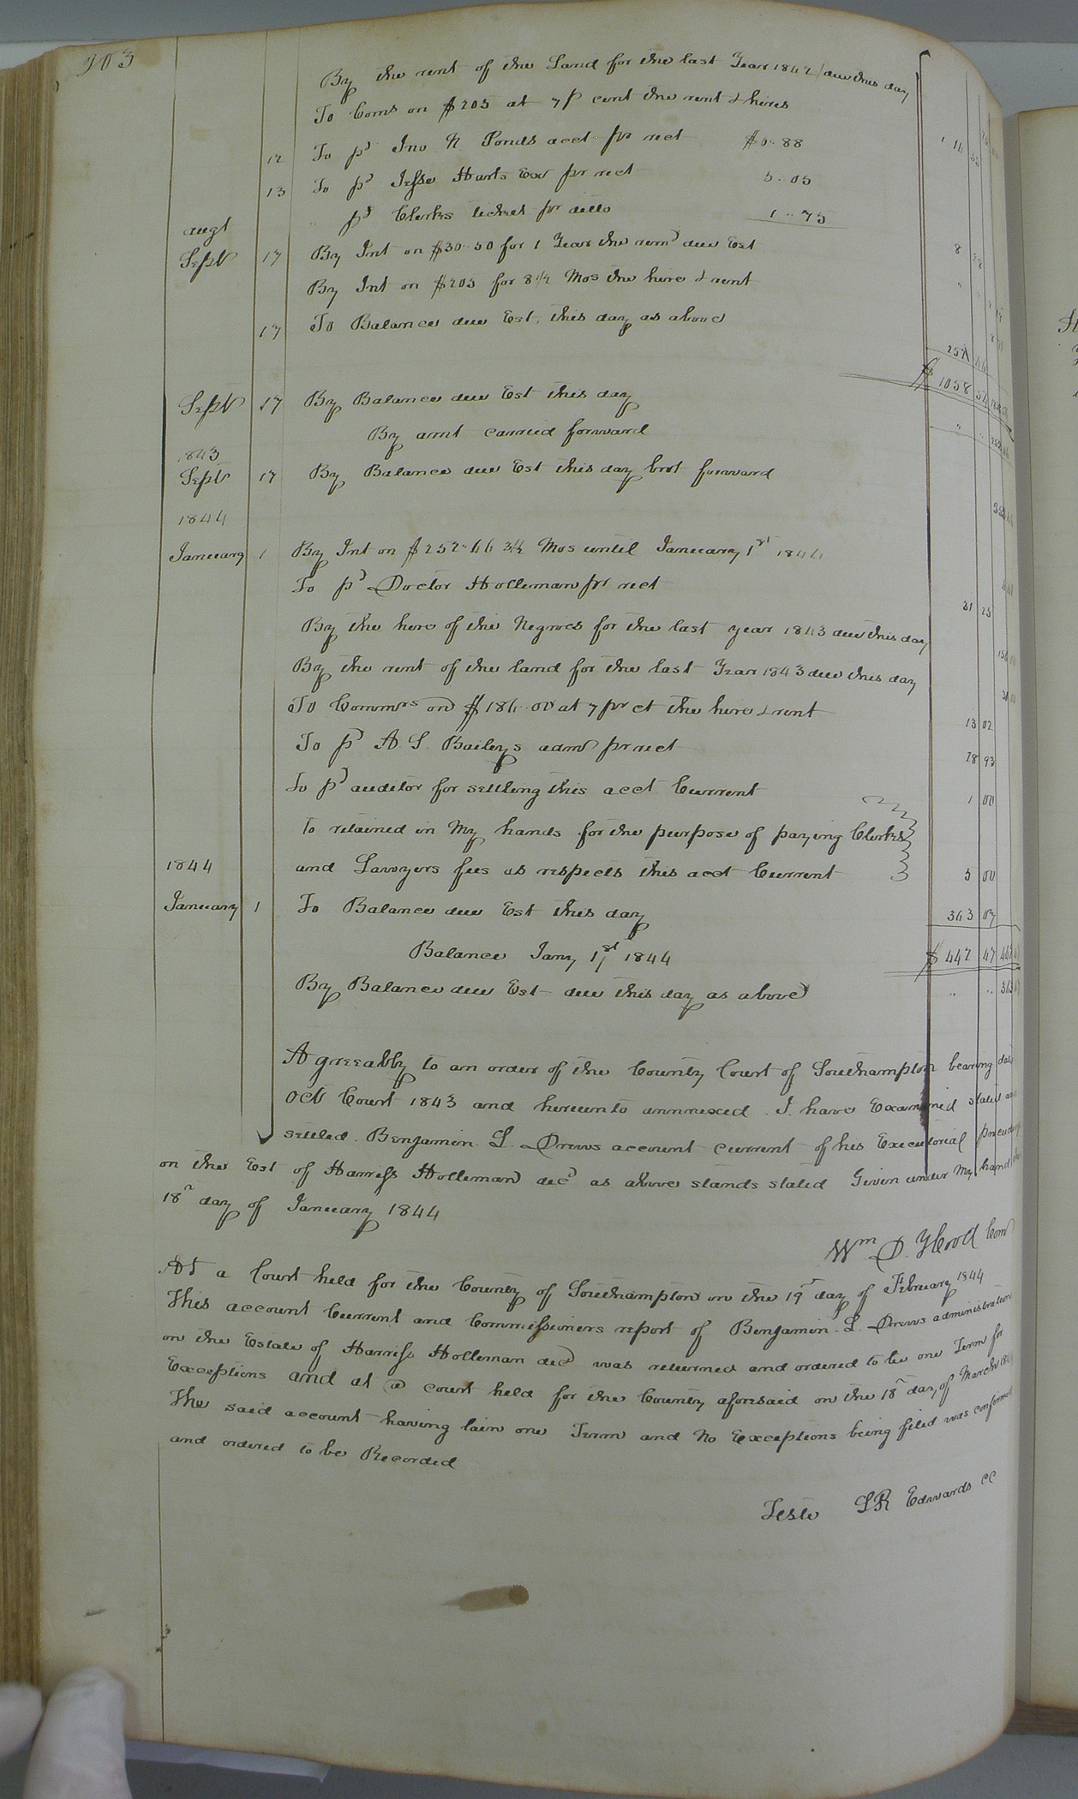 By the rent of the Land for the last Year 1842 due this day
To Coms on $205 at 7 p cent the rent & hires
12 To pd Jno N Ponds acct pr rect $0..88
13 To pd Jesse Harts Exr pr rect 5..05
" pd Clerks ticket pr ditto 1..75
augt
Sept 17 By Int on $30..50 for 1 Year the rent due Est 8
By Int on $205 for 8 1/2 Mos the hire & rent
17 To Balance due Est, this day as above
$ 1058
Sept 17 By Balance due Est this day
By amt carried forward
1843
Sept 17 By Balance due Est this day brot forward
1844
January 1 By Int on $252-66 3 1/2 Mos until January 1st 1844
To pd Doctor Holleman pr rect 31 25
By the hire of the Negroes for the last year 1843 due this day
By the rent of the land for the last Year 1843 due this day
To Commrs on $186-00 at 7 pr ct the hire & rent 13 02
To pd A. S. Baileys admr pr rect 28 93
To pd auditor for settling this acct Current 1 00
To retained in My hands for the purpose of paying Clerks
1844 and Lawyers fees as respects this acct Current 5 00
January 1 To Balance due Est this day 363 07
Balance Jany 1st 1844 $ 442 47
By Balance due Est due this day as above " "
Agreeably to an order of the County Court of Southampton bearing date
Oct Court 1843 and hereunto annnexed I have Examined stated and
settled Benjamin L. Drews account current of his Executorial
on the Est of Harress Holleman decd as above stands stated Given under My hand
18th day of January 1844
Wm D. Hood Com
At a Court held for the County of Southampton on the 19th day of February 1844
This account Current and Commissioners report of Benjamin L. Drews administration
on the Estate of Harress Holleman decd was returned and ordered to lie one Term for
Exceptions and at a court held for the County aforesaid on the 18th day of March
The said account having lain one Term and No Exceptions being filed was confirmed
and ordered to be Recorded
Teste LR Edwards CC